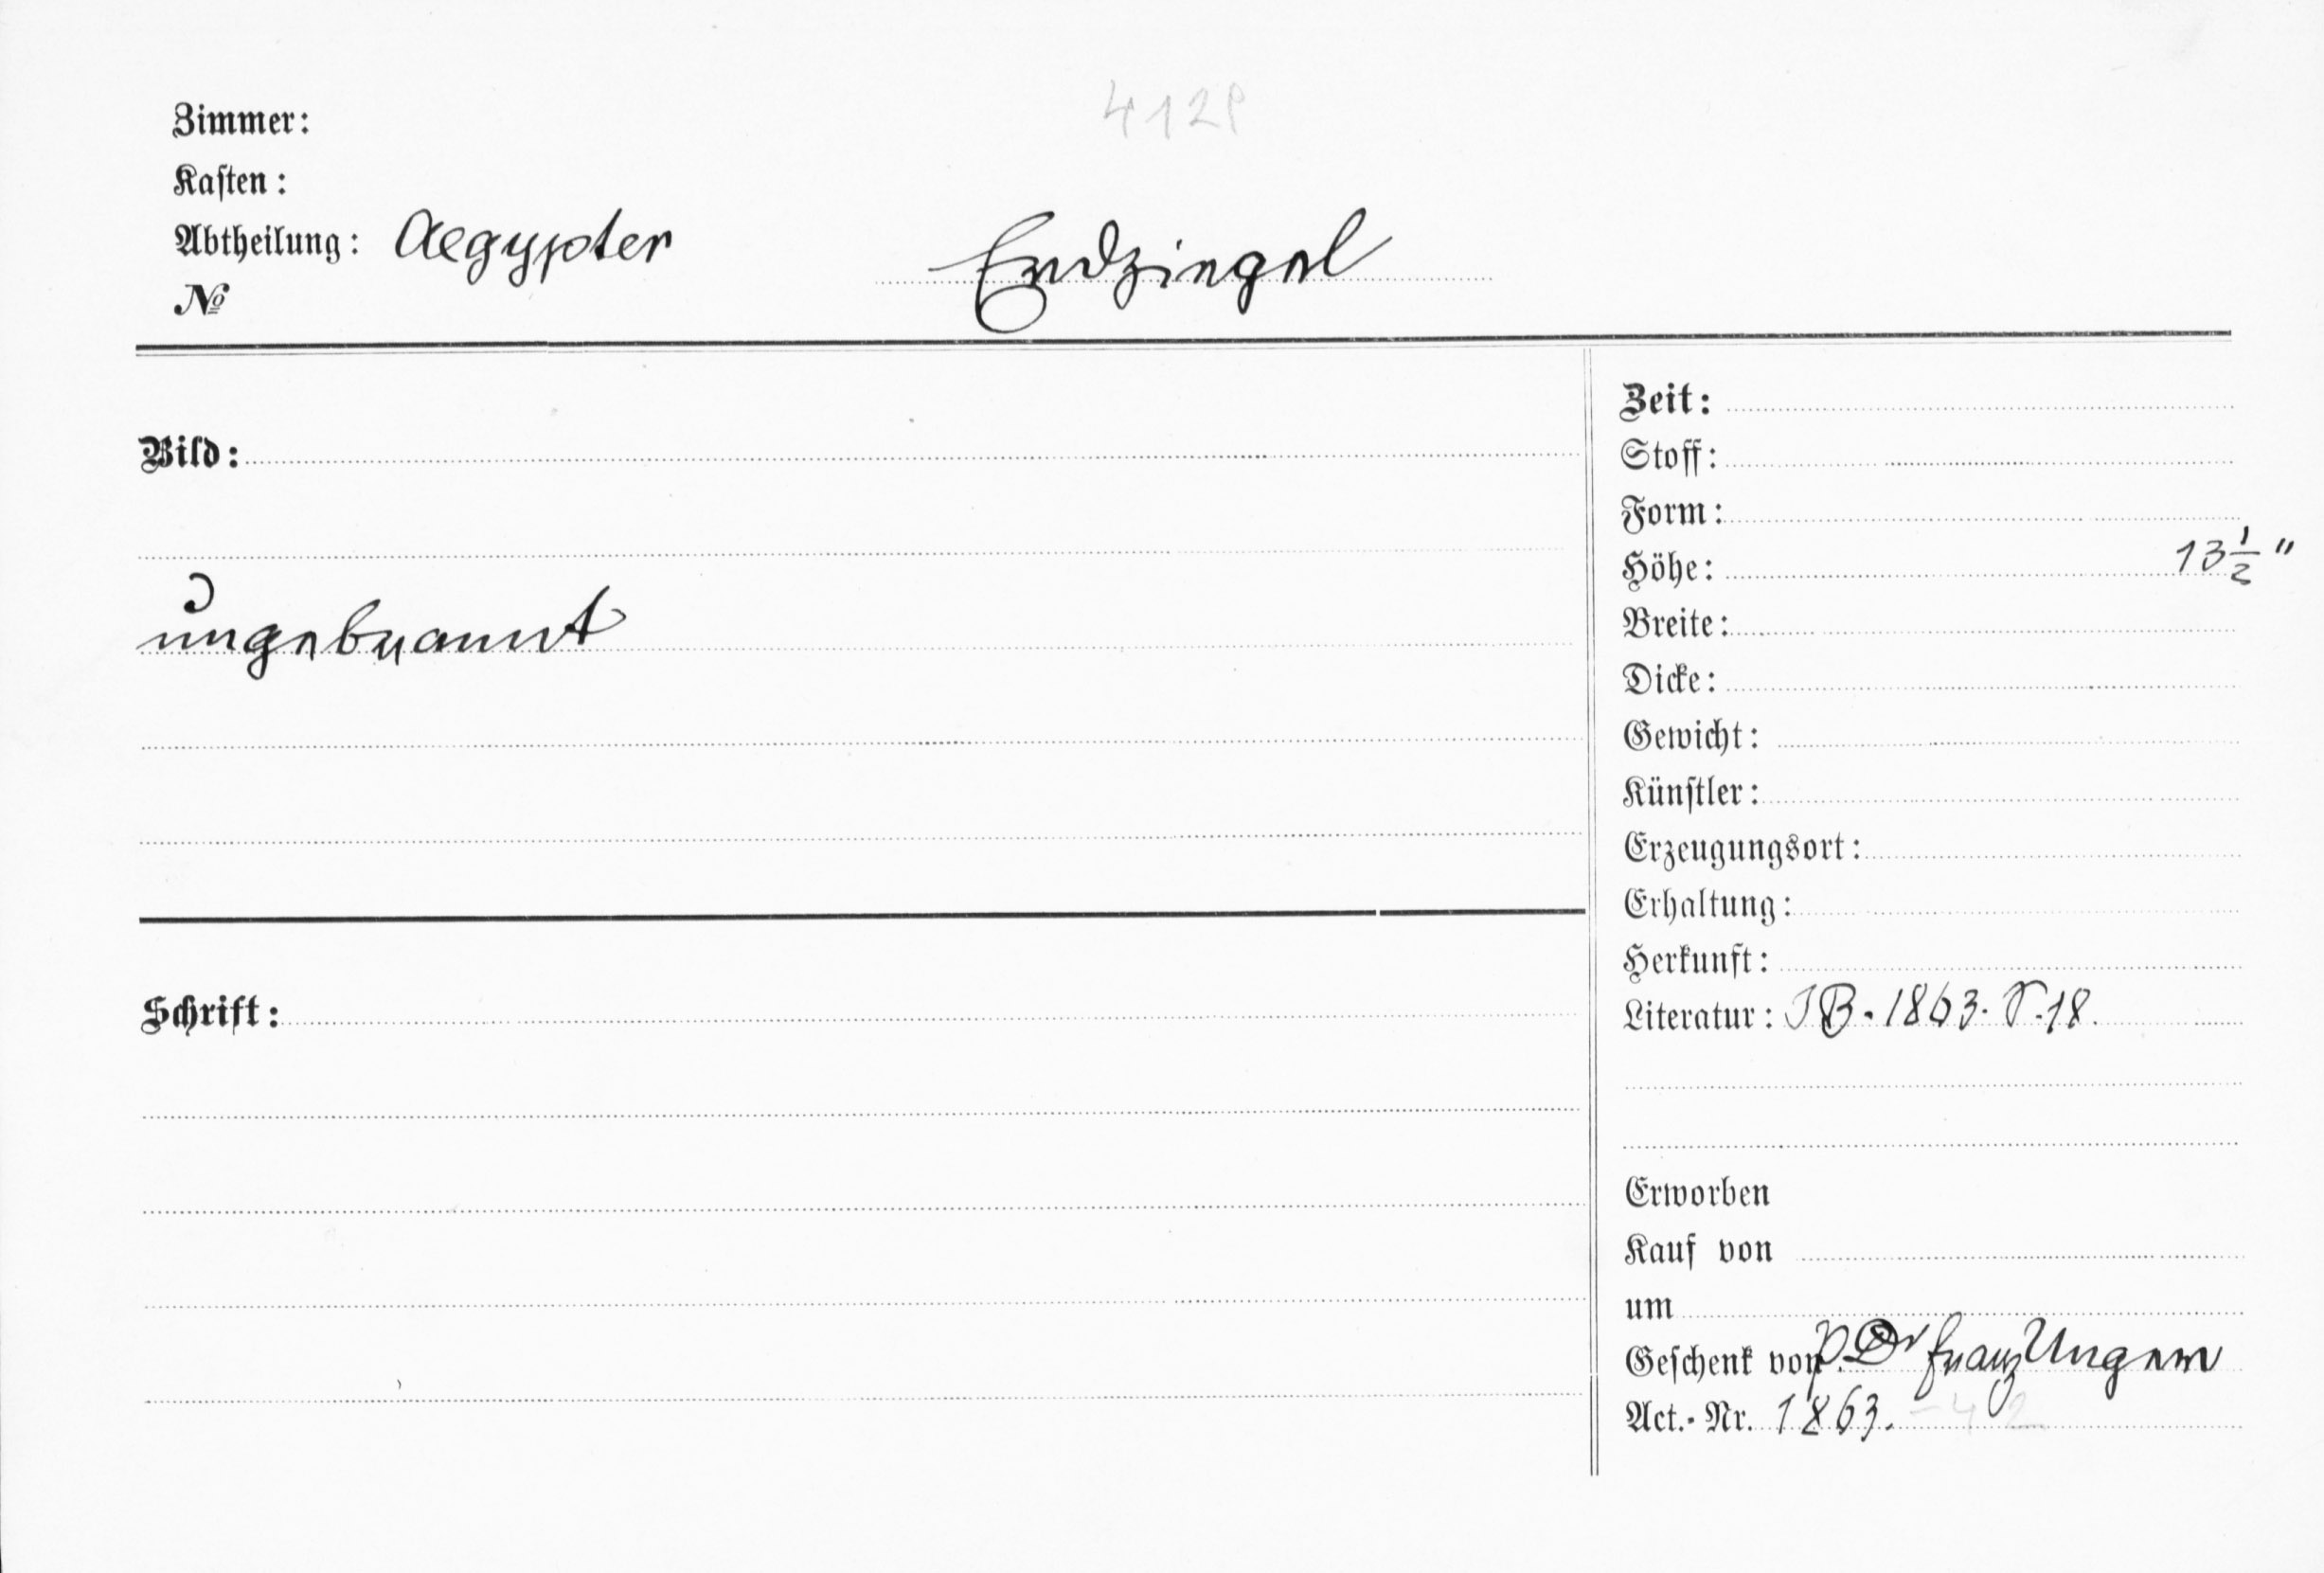 Zimmer:
Kasten:
Abtheilung: Aegypter
Erdziegel
№
Bild:
ungebrannt
Schrift:
Zeit:
Stoff:
Form:
Höhe: 13 1/2 "
Breite:
Dicke:
Gewicht:
Künstler:
Erzeugungsort:
Erhaltung:
Herkunft:
Literatur: JB. 1863. S. 18.
Erworben
Kauf von
um
Geschenk von P. Dr Franz Unger
Act.-Nr. 1863.